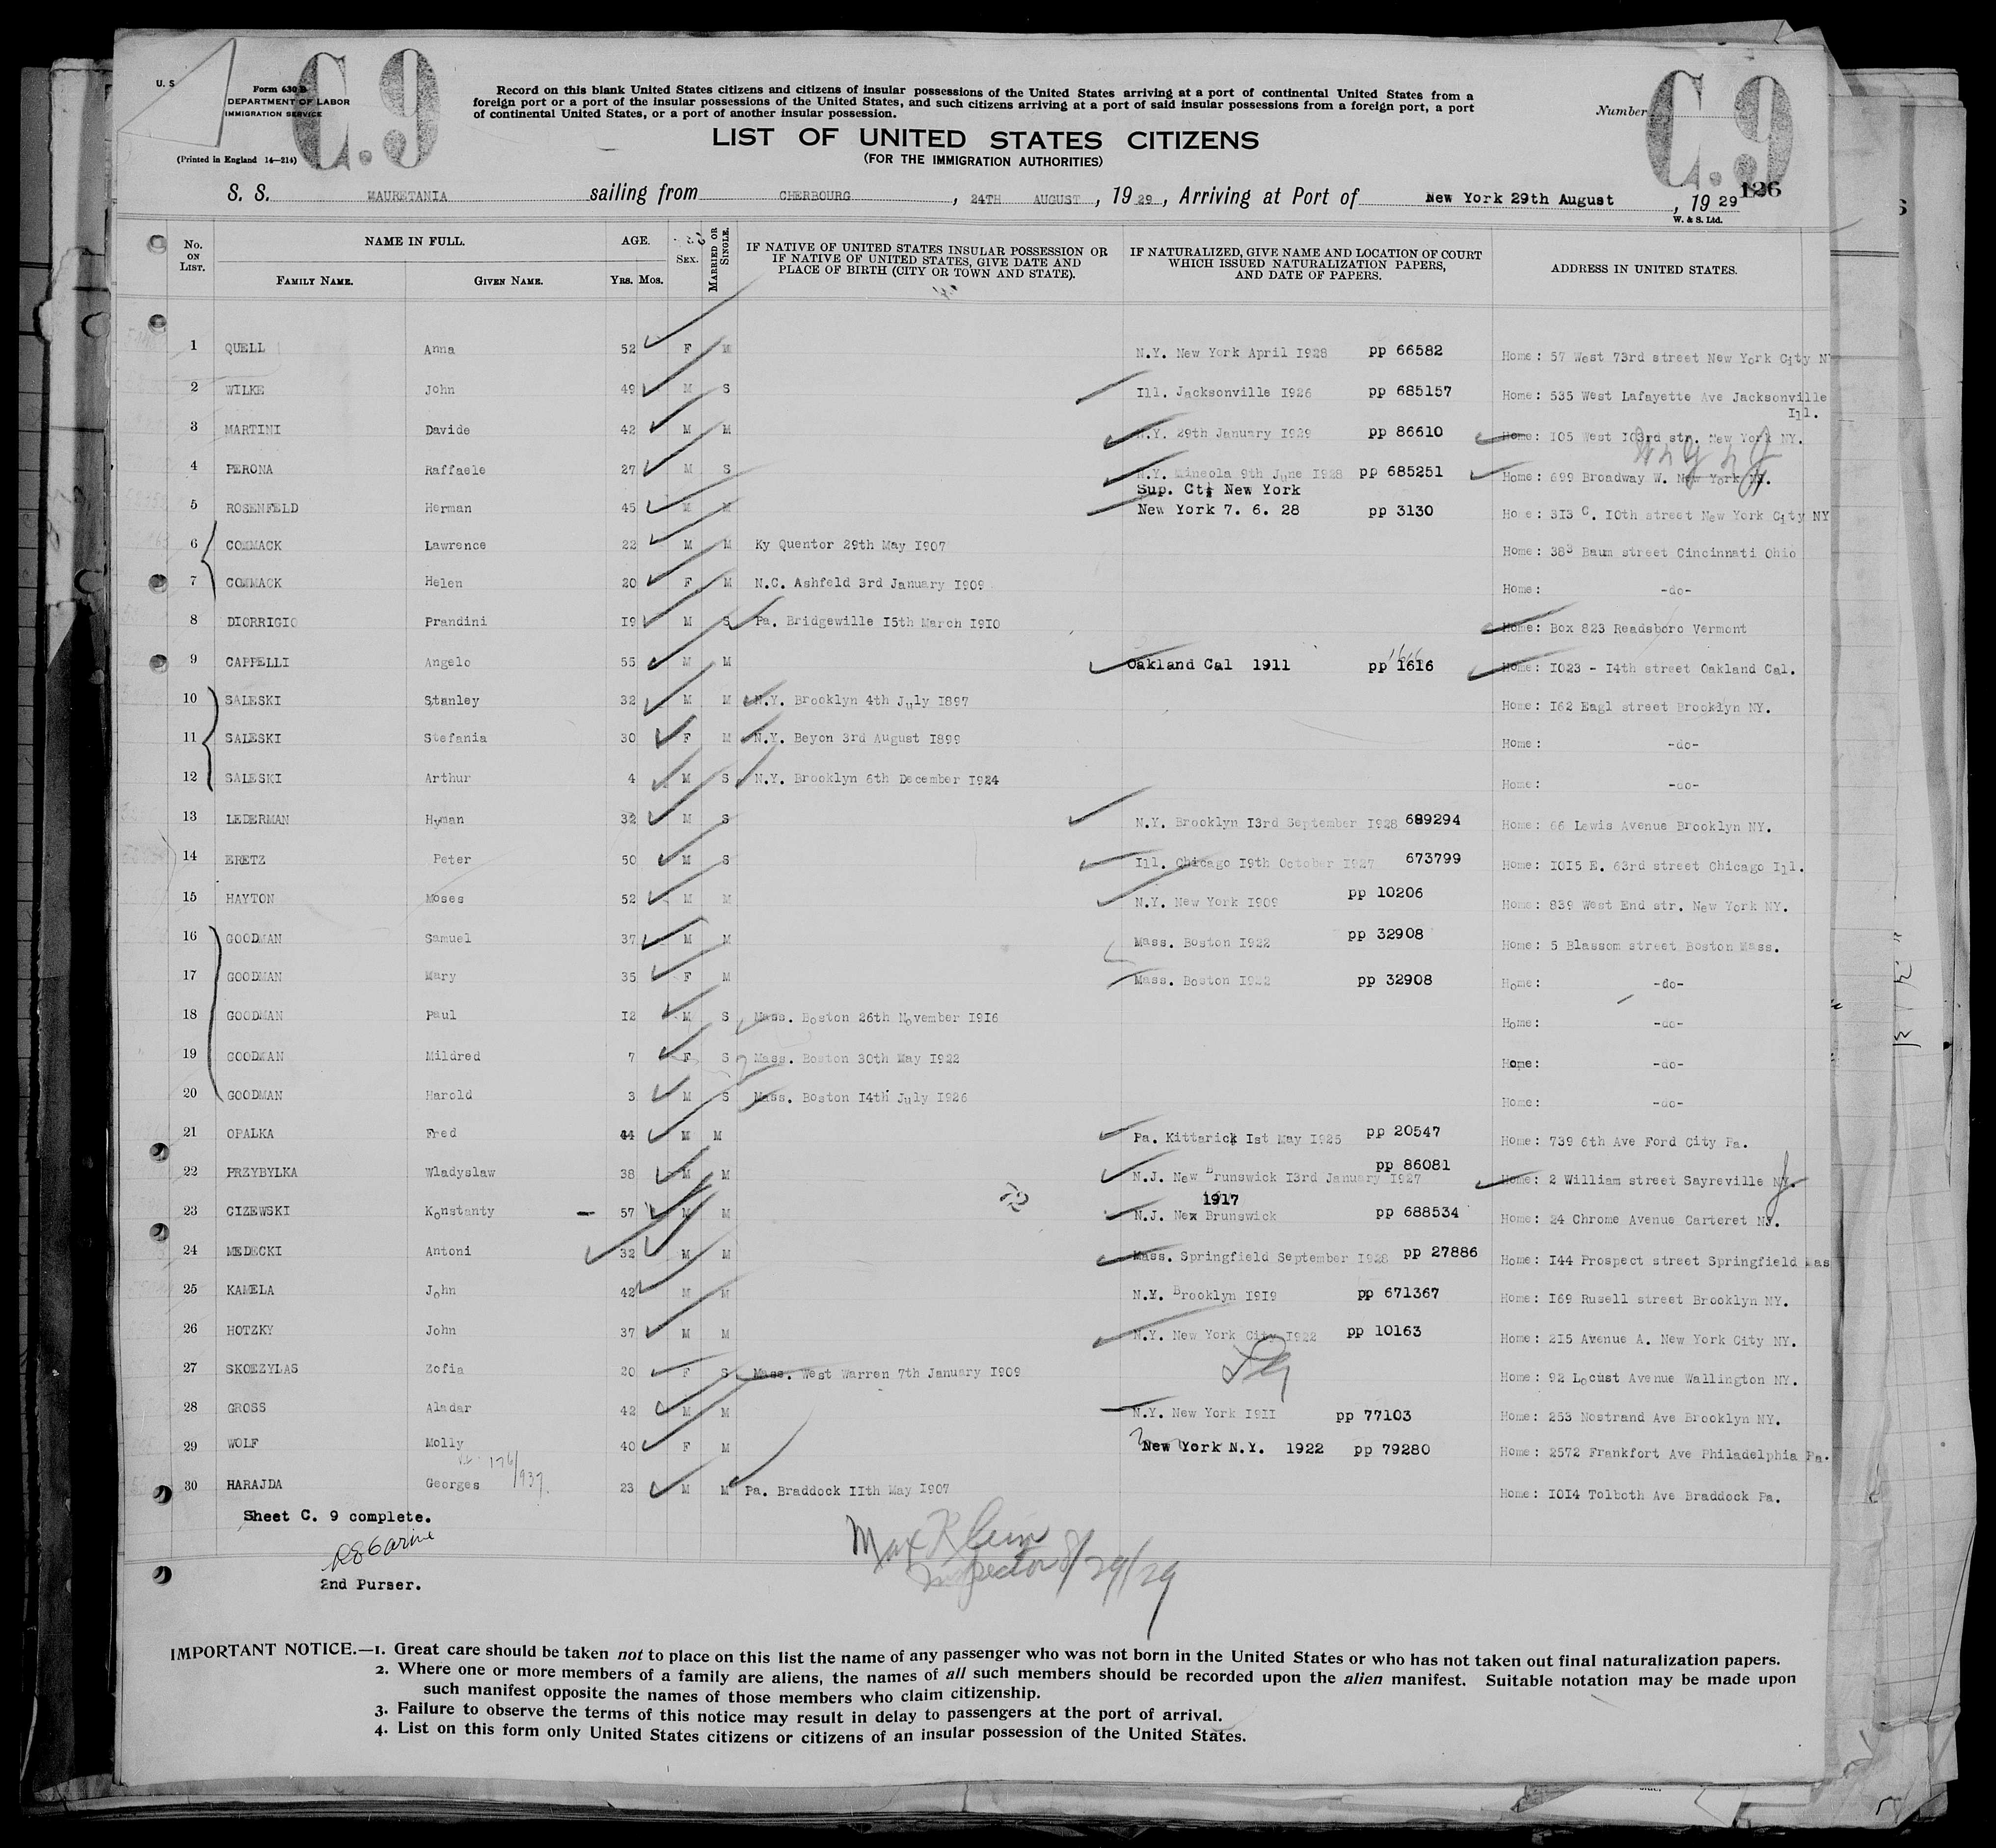 U. S.
Form 630 B
DEPARTMENT OF LABOR
IMMIGRATION SERVICE
C.9
(Printed in England 14—214)
Record on this blank United States citizens and citizens of insular possessions of the United States arriving at a port of continental United States from a
foreign port or a port of the insular possessions of the United States, and such citizens arriving at a port of said insular possessions from a foreign port, a port
of continental United States, or a port of another insular possession.
Number
C.9
126
LIST OF UNITED STATES CITIZENS
(FOR THE IMMIGRATION AUTHORITIES)
S. S. MAURETANIA sailing from CHERBOURG, 24TH AUGUST, 1929, Arriving at Port of New York 29th August, 1929
W. & S. Ltd.
No. ON LIST. NAME IN FULL. FAMILY NAME. GIVEN NAME. AGE. YRS. MOS. SEX. MARRIED OR SINGLE. IF NATIVE OF UNITED STATES INSULAR POSSESSION OR IF NATIVE OF UNITED STATES, GIVE DATE AND PLACE OF BIRTH (CITY OR TOWN AND STATE). IF NATURALIZED, GIVE NAME AND LOCATION OF COURT WHICH ISSUED NATURALIZATION PAPERS, AND DATE OF PAPERS. ADDRESS IN UNITED STATES.
1 QUELL Anna 52 F M N.Y. New York April I928 pp 66582 Home: 57 West 73rd street New York City N
2 WILKE John 49 M S Ill. Jacksonville I926 pp 685157 Home: 535 West Lafayette Ave Jacksonville Ill.
3 MARTINI Davide 42 M M N.Y. 29th January I929 pp 86610 Home: I05 West I03rd str. New York NY.
4 PERONA Raffaele 27 M S N.Y. Mineola 9th June I928 pp 685251 Home: 699 Broadway W. New York NY.
5 ROSENFELD Herman 45 M M Sup. Ct. New York New York 7. 6. 28 pp 3130 Home: 3I3 C. I0th street New York City NY
6 COMMACK Lawrence 22 M M Ky Quentor 29th May I907 Home: 383 Baum street Cincinnati Ohio
7 COMMACK Helen 20 F M N.C. Ashfeld 3rd January I909 Home: -do-
8 DIORRIGIO Prandini I9 M S Pa. Bridgewille I5th March I9I0 Home: Box 823 Readsboro Vermont
9 CAPPELLI Angelo 55 M M Oakland Cal 1911 pp 1616 Home: I023 - I4th street Oakland Cal.
10 SALESKI Stanley 32 M M N.Y. Brooklyn 4th July I897 Home: I62 Eagl street Brooklyn NY.
11 SALESKI Stefania 30 F M N.Y. Beyon 3rd August I899 Home: -do-
12 SALESKI Arthur 4 M S N.Y. Brooklyn 6th December I924 Home: -do-
13 LEDERMAN Hyman 32 M S N.Y. Brooklyn I3rd September I928 689294 Home: 66 Lewis Avenue Brooklyn NY.
14 ERETZ Peter 50 M S Ill. Chicago I9th October I927 673799 Home: I0I5 E. 63rd street Chicago Ill.
15 HAYTON Moses 52 M M N.Y. New York I909 pp 10206 Home: 839 West End str. New York NY.
16 GOODMAN Samuel 37 M M Mass. Boston I922 pp 32908 Home: 5 Blassom street Boston Mass.
17 GOODMAN Mary 35 F M Mass. Boston I922 pp 32908 Home: -do-
18 GOODMAN Paul I2 M S Mass. Boston 26th November I9I6 Home: -do-
19 GOODMAN Mildred 7 F S Mass. Boston 30th May I922 Home: -do-
20 GOODMAN Harold 3 M S Mass. Boston I4th July I926 Home: -do-
21 OPALKA Fred 44 M M Pa. Kittarick Ist May I925 pp 20547 Home: 739 6th Ave Ford City Pa.
22 PRZYBYLKA Wladyslaw 38 M M N.J. New Brunswick I3rd January I927 pp 86081 Home: 2 William street Sayreville NJ.
23 CIZEWSKI Konstanty 57 M M 1917 N.J. New Brunswick pp 688534 Home: 24 Chrome Avenue Carteret NJ.
24 MEDECKI Antoni 32 M M Mass. Springfield September I928 pp 27886 Home: I44 Prospect street Springfield Mas
25 KAMELA John 42 M M N.Y. Brooklyn I9I9 pp 671367 Home: I69 Rusell street Brooklyn NY.
26 HOTZKY John 37 M M N.Y. New York City I922 pp 10163 Home: 2I5 Avenue A. New York City NY.
27 SKOEZYLAS Zofia 20 F S Mass. West Warren 7th January I909 Home: 92 Locust Avenue Wallington NY.
28 GROSS Aladar 42 M M N.Y. New York I9II pp 77103 Home: 253 Nostrand Ave Brooklyn NY.
29 WOLF Molly 40 F M New York N.Y. 1922 pp 79280 Home: 2572 Frankfort Ave Philadelphia Pa.
176/937.
30 HARAJDA Georges 23 M M Pa. Braddock IIth May I907 Home: I0I4 Tolboth Ave Braddock Pa.
Sheet C. 9 complete.
2nd Purser.
Max Klein
Inspector 8/29/29
IMPORTANT NOTICE.—1. Great care should be taken not to place on this list the name of any passenger who was not born in the United States or who has not taken out final naturalization papers.
2. Where one or more members of a family are aliens, the names of all such members should be recorded upon the alien manifest. Suitable notation may be made upon
such manifest opposite the names of those members who claim citizenship.
3. Failure to observe the terms of this notice may result in delay to passengers at the port of arrival.
4. List on this form only United States citizens or citizens of an insular possession of the United States.